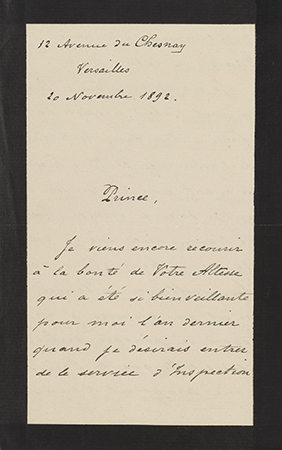 12 Avenue du Chesnay
Versailles
20 Novembre 1892.
Prince,
Je viens encore recourir
à la bonté de Votre Altesse
qui a été si bienveillante
pour moi l'an dernier
quand je désirais entrer
de le service d'Inspection